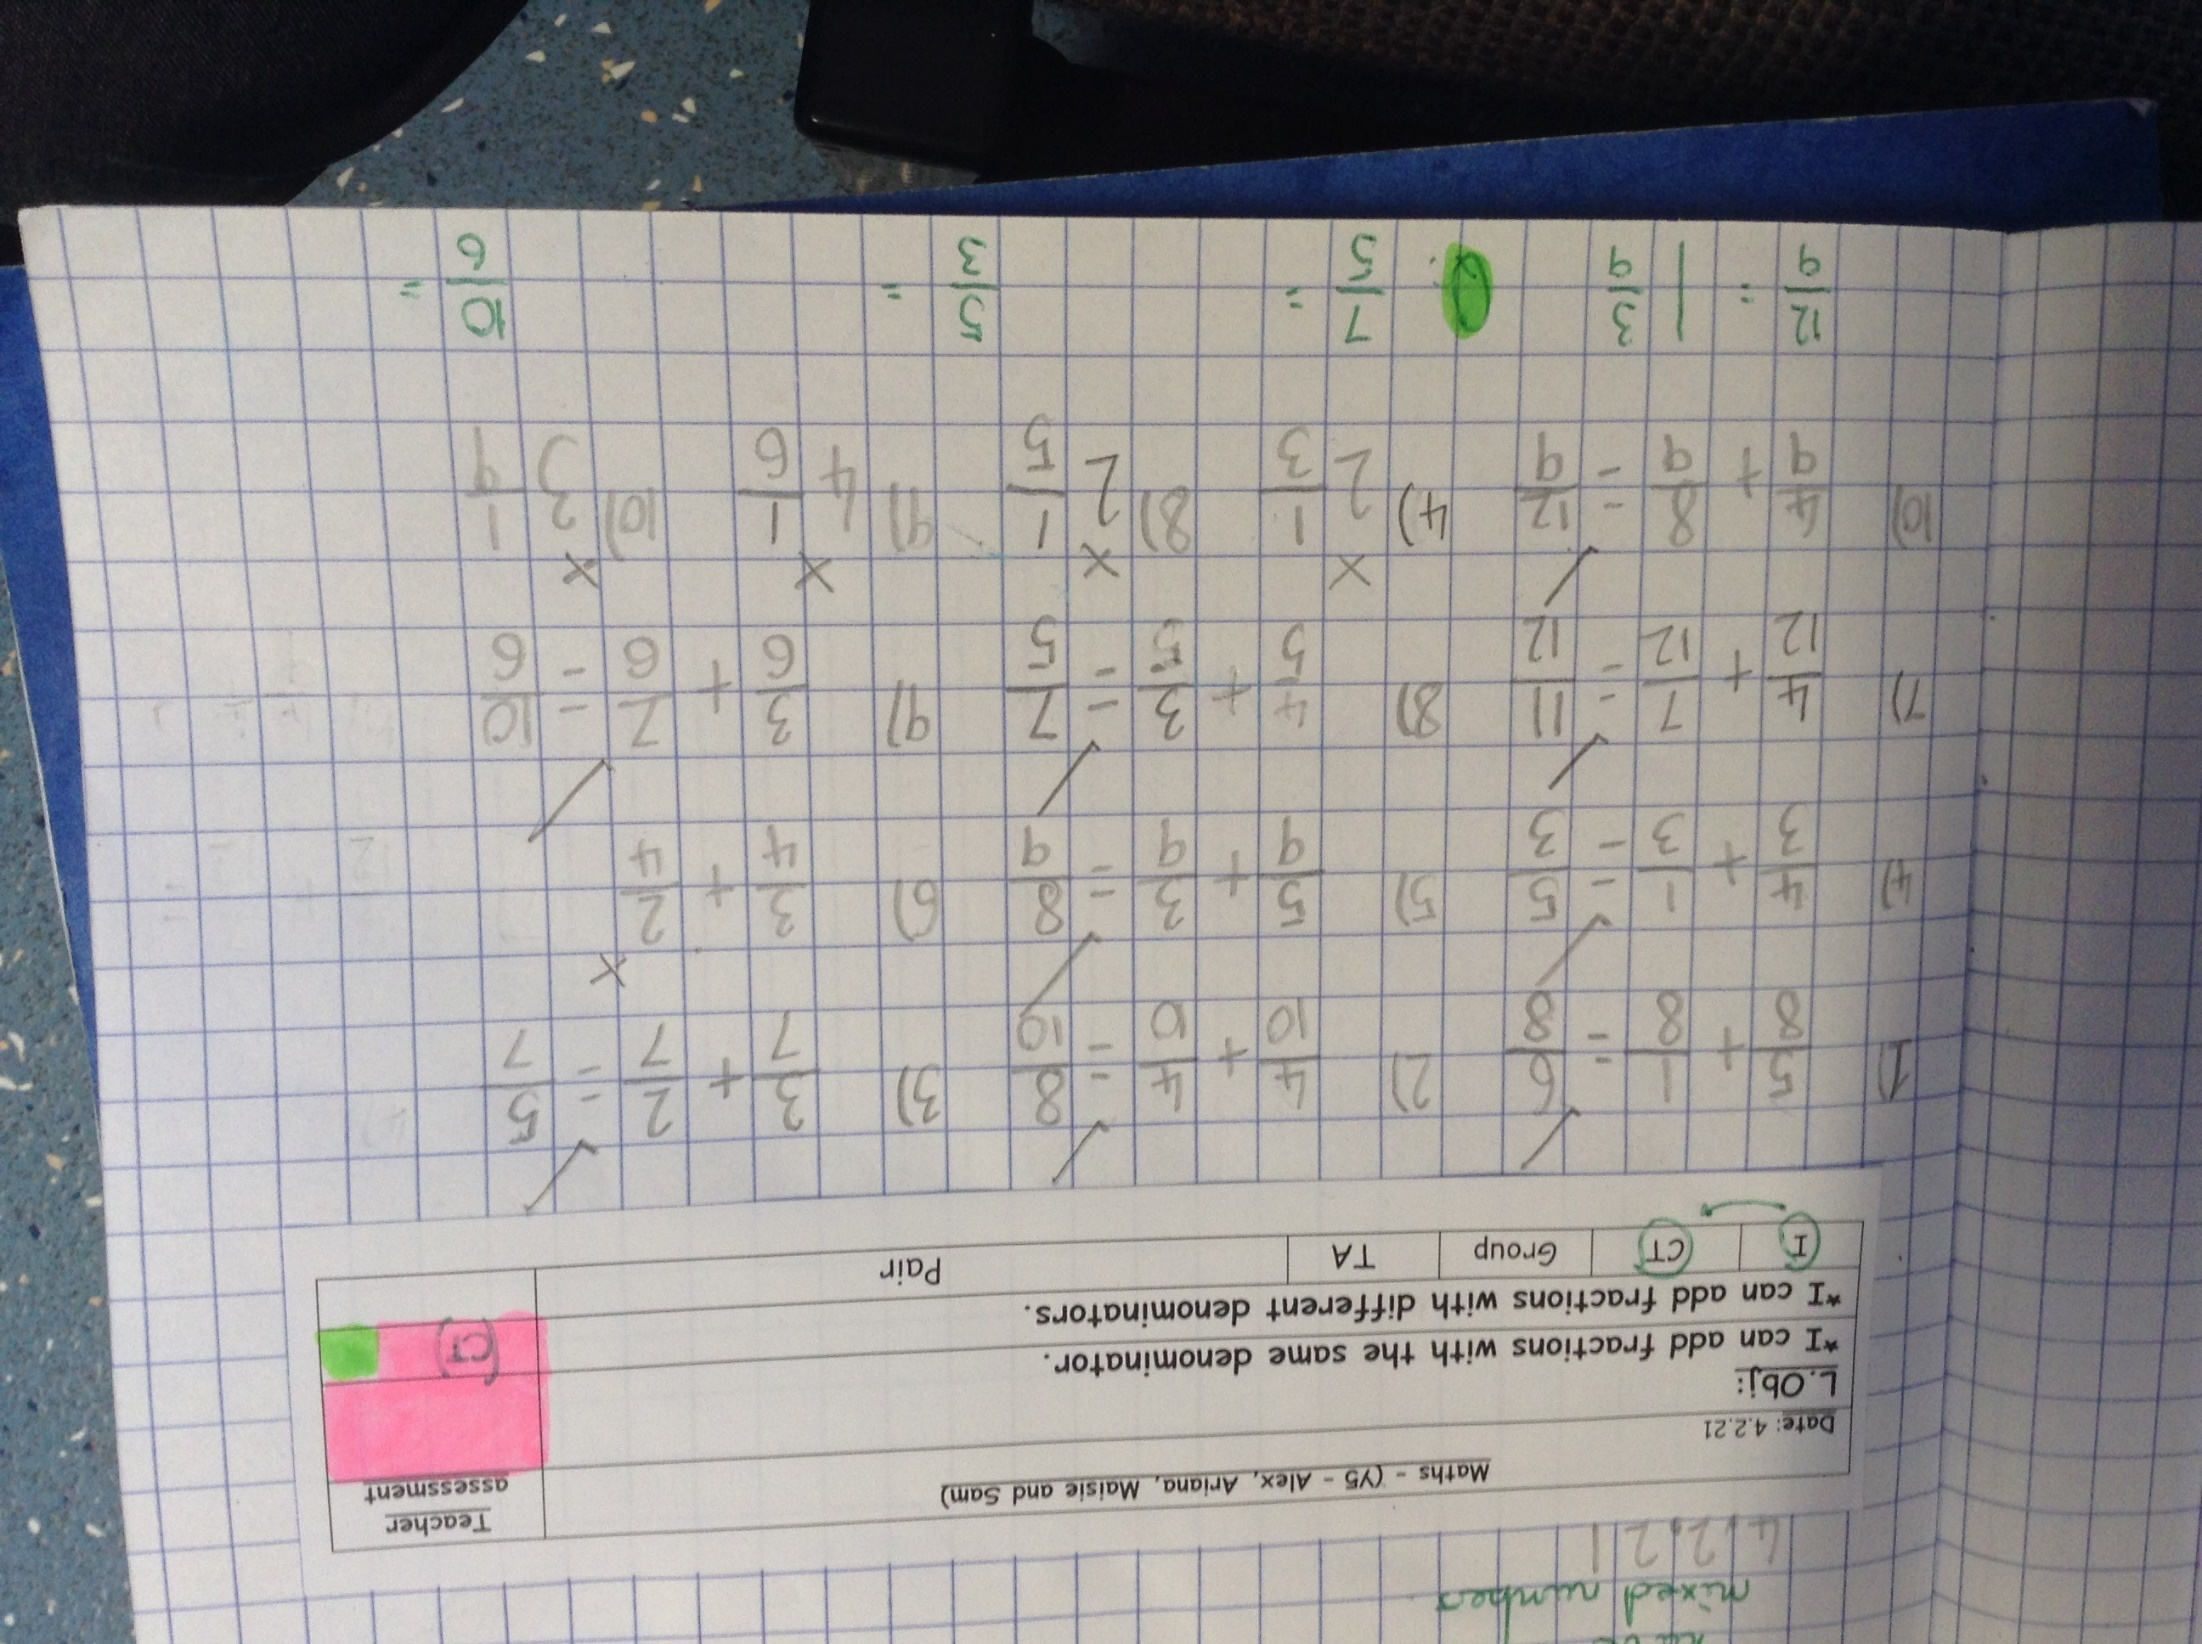 mixed numbers
4.2.21
Maths - (Y5 - Alex, Ariana, Maisie and Sam)
Teacher assessment
Date: 4.2.21
L.Obj:
*I can add fractions with the same denominator.
*I can add fractions with different denominators.
(CT)
I CT Group TA Pair
1) 5/8 + 1/8 = 6/8 2) 4/10 + 4/10 = 8/10 3) 3/7 + 2/7 = 5/7
4) 4/3 + 1/3 = 5/3 5) 5/9 + 3/9 = 8/9 6) 3/4 + 2/4
7) 4/12 + 7/12 = 11/12 8) 4/5 + 3/5 = 7/5 9) 3/6 + 7/6 = 10/6
10) 4/9 + 8/9 = 12/9 4) 2 1/3 8) 2 1/5 9) 4 1/6 10) 3 1/9
12/9 = 1 3/9 7/5 = 5/3 = 10/6 =